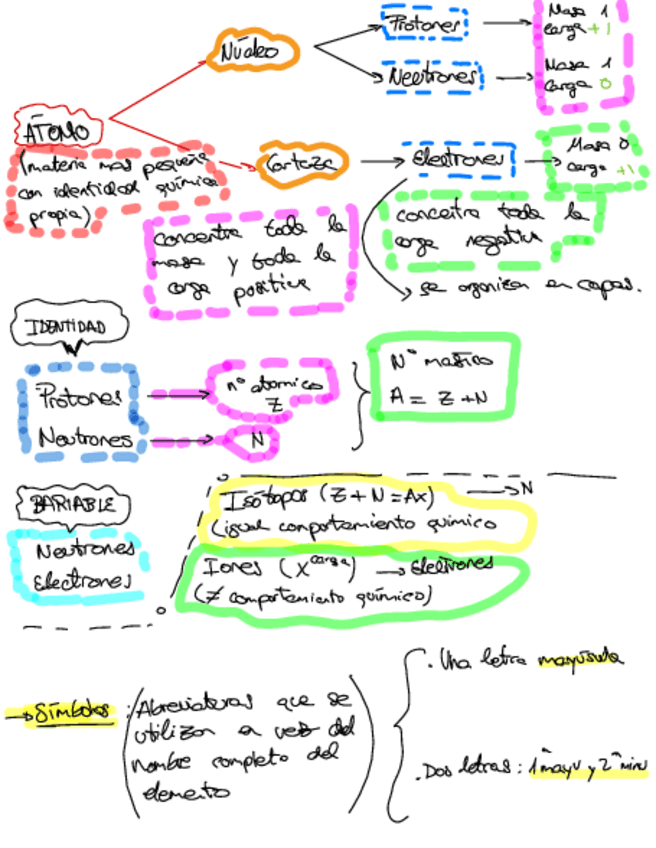 Núcleo
Protones
Masa 1
carga +1
Neutrones
Masa 1
carga 0
ÁTOMO
(materia más pequeña
con identidad química
propia)
Corteza
Electrones
Masa 0
carga +1
concentra toda la
masa y toda la
carga positiva
concetra toda la
carga negativa
se organizan en capas.
IDENTIDAD
Protones
nº atomico
Z
Neutrones
N
Nº masico
A = Z + N
BARIABLE
Neutrones
Electrones
Isótopos (Z + N = Ax)
N
(igual comportamiento químico
Iones (X^carga)
Electrones
(≠ comportamiento químico)
Símbolos:
(Abreviaturas que se
utilizan en vez del
nombre completo del
elemento)
. Una letra mayúscula
. Dos letras: 1ª mayu y 2ª minu